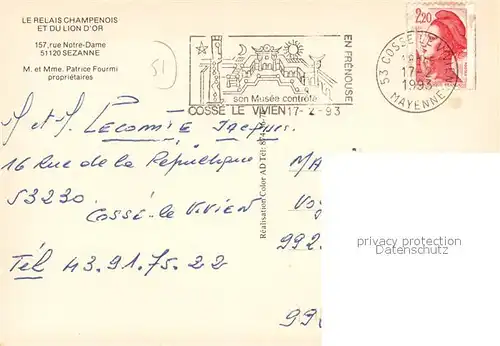 LE RELAIS CHAMPENOIS
ET DU LION D'OR
157, rue Notre-Dame
51120 SEZANNE
M. et Mme. Patrice Fourmi
propriétaires
51
EN FRÉNOUSE
son Musée contrôlé
COSSÉ LE VIVIEN 17-2-93
2,20
53 COSSE LE VIVIEN
17-2
1993
MAYENNE
Réalisation Color AD Tél:
M et M. Lecomte Jacques
16 Rue de la République
53230
Cossé-le Vivien
Tél 43.91.75.22
992
99
privacy protection
Datenschutz